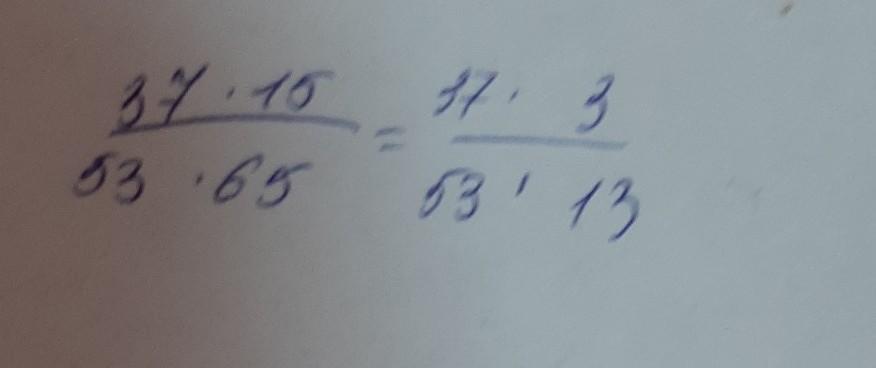 37 · 15 / 53 · 65 = 37 · 3 / 53 · 13